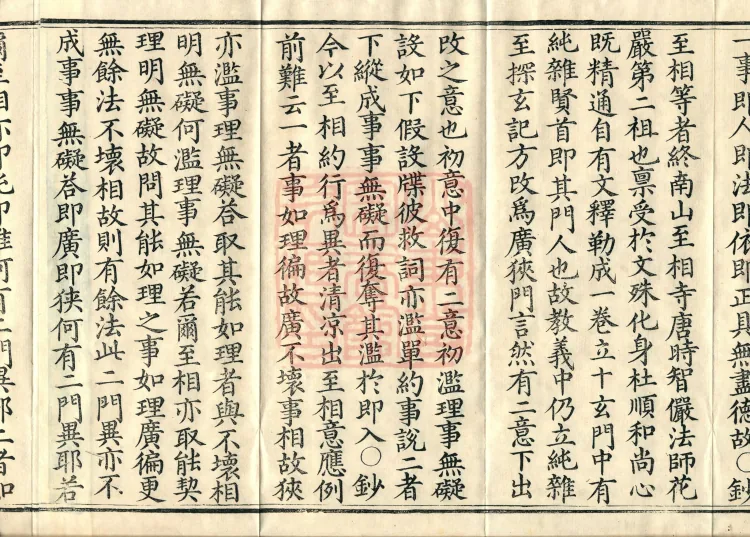 一事即人即法即依即正具無盡德故〇鈔
至相等者終南山至相寺唐時智儼法師花
嚴第二祖也禀受於文殊化身杜順和尚心
既精通自有文釋勒成一卷立十玄門中有
純雜賢首即其門人也故教義中仍立純雜
至探玄記方改爲廣狹門言然有二意下出
改之意也初意中復有二意初濫理事無礙
設如下假設牒彼救詞亦濫單約事說二者
下縱成事事無礙而復奪其濫於即入〇鈔
今以至相約行爲異者清凉出至相意應例
前難云一者事如理徧故廣不壞事相故狹
亦濫事理無礙荅取其能如理者與不壞相
明無礙何濫理事無礙若爾至相亦取能契
理明無礙故問其能如理之事如理廣徧更
無餘法不壞相故則有餘法此二門異亦不
成事事無礙荅即廣即狹何有二門異耶若